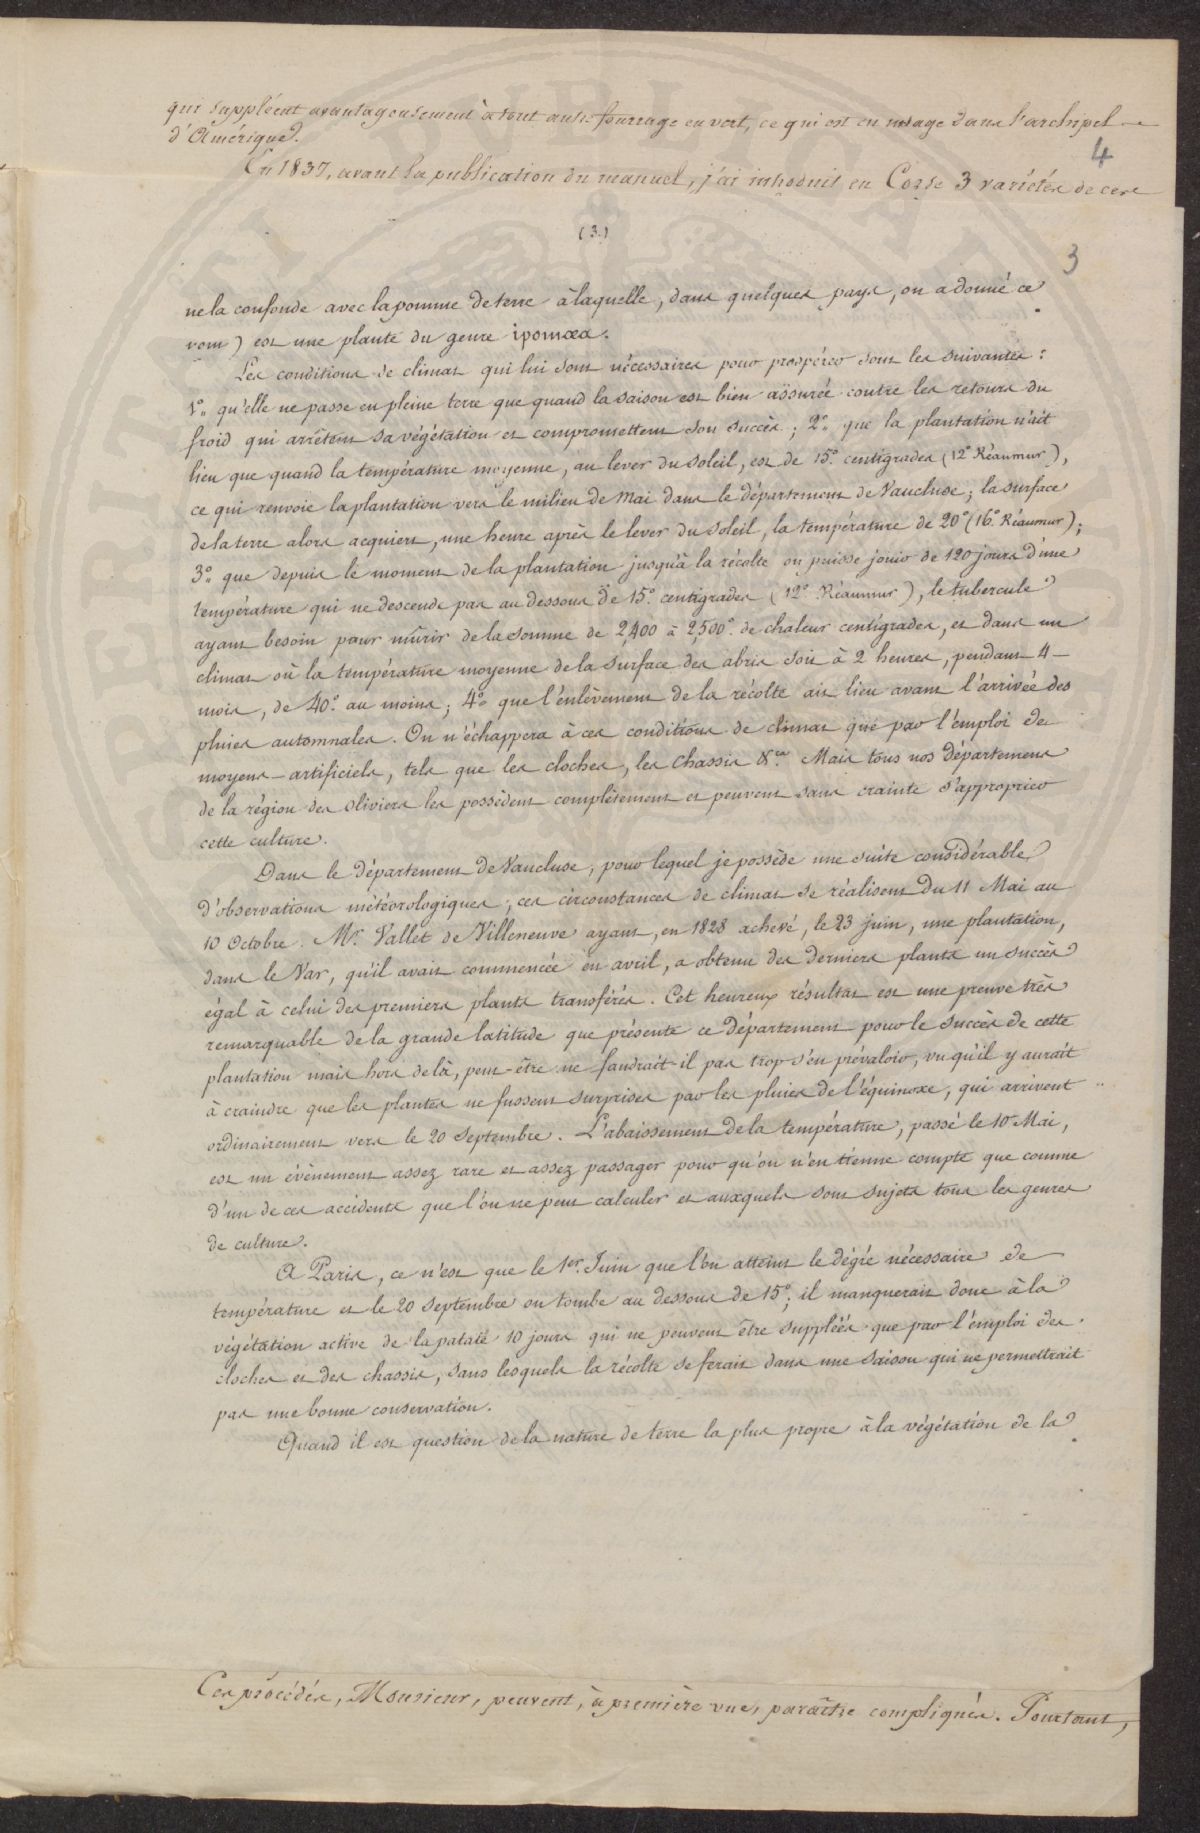 qui suppléent avantageusement à tout autre fourrage en vert, ce qui est en usage dans l'archipel
d'Amérique.
4
En 1837, avant la publication du manuel, j'ai introduit en Corse 3 variétés de ces
(3)
3
ne la confonde avec la pomme de terre à laquelle, dans quelques pays, on a donné ce
nom) est une plante du genre ipomœa.
Les conditions de climat qui lui sont nécessaires pour prospérer sont les suivantes :
1.° qu'elle ne passe en pleine terre que quand la saison est bien assurée contre les retours du
froid qui arrêtent sa végétation et compromettent son succès ; 2.° que la plantation n'ait
lieu que quand la température moyenne, au lever du soleil, est de 15.° centigrades (12° Réaumur),
ce qui renvoie la plantation vers le milieu de Mai dans le département de Vaucluse ; la surface
de la terre alors acquiert, une heure après le lever du soleil, la température de 20° (16.° Réaumur) ;
3.° que depuis le moment de la plantation jusqu'à la récolte on puisse jouir de 120 jours d'une
température qui ne descende pas au dessous de 15.° centigrades (12° Réaumur), le tubercule
ayant besoin pour mûrir de la somme de 2,400 à 2,500.° de chaleur centigrades, et dans un
climat où la température moyenne de la surface des abris soit à 2 heures, pendant 4
mois, de 40.° au moins ; 4.° que l'enlèvement de la récolte ait lieu avant l'arrivée des
pluies automnales. On n'échappera à ces conditions de climat que par l'emploi de
moyens artificiels, tels que les cloches, les chassis &.ca Mais tous nos départemens
de la région des oliviers les possèdent complètement et peuvent sans crainte s'approprier
cette culture.
Dans le département de Vaucluse, pour lequel je possède une suite considérable
d'observations météorologiques, ces circonstances de climat se réalisent du 11 Mai au
10 Octobre. Mr. Vallet de Villeneuve ayant, en 1828 achevé, le 23 juin, une plantation,
dans le Var, qu'il avait commencée en avril, a obtenu des derniers plants un succès
égal à celui des premiers plants transférés. Cet heureux résultat est une preuve très
remarquable de la grande latitude que présente ce département pour le succès de cette
plantation mais hors de là, peut-être ne faudrait-il pas trop s'en prévaloir, vu qu'il y aurait
à craindre que les plantes ne fussent surprises par les pluies de l'équinoxe, qui arrivent
ordinairement vers le 20 septembre. L'abaissement de la température, passé le 10 Mai,
est un évènement assez rare et assez passager pour qu'on n'en tienne compte que comme
d'un de ces accidents que l'on ne peut calculer et auxquels sont sujets tous les genres
de culture.
A Paris, ce n'est que le 1er. Juin que l'on atteint le dégré nécessaire de
température et le 20 septembre on tombe au dessous de 15° ; il manquerait donc à la
végétation active de la patate 10 jours qui ne peuvent être suppléés que par l'emploi des
cloches et des chassis, sans lesquels la récolte se ferait dans une saison qui ne permettrait
pas une bonne conservation.
Quand il est question de la nature de terre la plus propre à la végétation de la
Ces procédés, Monsieur, peuvent, à première vue, paraître compliqués. Pourtant,